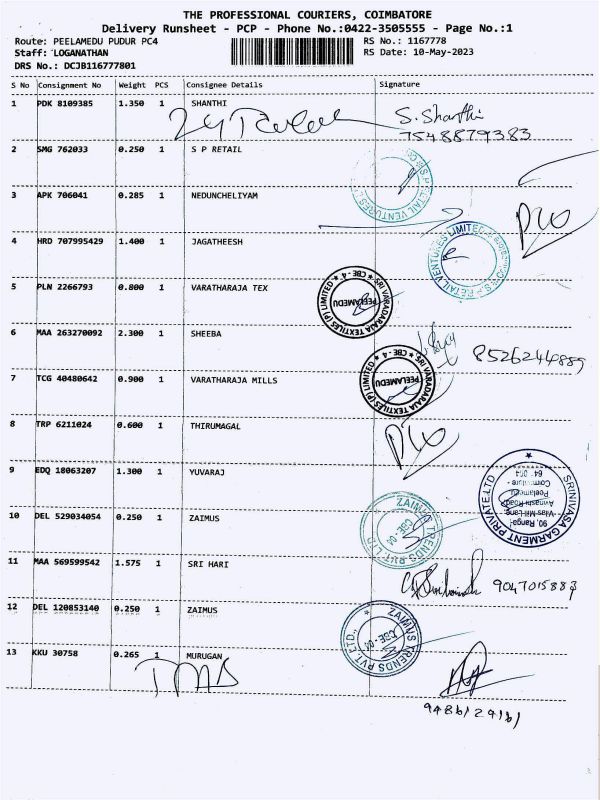 THE PROFESSIONAL COURIERS, COIMBATORE
Delivery Runsheet - PCP - Phone No.:0422-3505555 - Page No.:1
Route: PEELAMEDU PUDUR PC4 RS No.: 1167778
Staff: LOGANATHAN RS Date: 10-May-2023
DRS No.: DCJB116777801
S No Consignment No Weight PCS Consignee Details Signature
1 PDK 8109385 1.350 1 SHANTHI S. Shanthi
7548879383
2 SMG 762033 0.250 1 S P RETAIL
S P RETAIL VENTURES
3 APK 706041 0.285 1 NEDUNCHELIYAM
4 HRD 707995429 1.400 1 JAGATHEESH
S P RETAIL VENTURES LIMITED
5 PLN 2266793 0.800 1 VARATHARAJA TEX
SRI VARADARAJA TEXTILES (P) LIMITED
CBE - 4
PEELAMEDU
6 MAA 263270092 2.300 1 SHEEBA 8526244889
7 TCG 40480642 0.900 1 VARATHARAJA MILLS
SRI VARADARAJA TEXTILES (P) LIMITED
CBE - 4
PEELAMEDU
8 TRP 6211024 0.600 1 THIRUMAGAL
9 EDQ 18063207 1.300 1 YUVARAJ
SRINIVASA GARMENT PRIVATE LTD
90, Ranga
Vilas Mill Lane,
Avinashi Road
Peelamedu
Coimbatore -
64. 004
10 DEL 529034054 0.250 1 ZAIMUS
ZAIMUS TRENDS PVT. LTD
CBE - 04
11 MAA 569599542 1.575 1 SRI HARI 9047015883
12 DEL 120853140 0.250 1 ZAIMUS
ZAIMUS TRENDS PVT. LTD.,
CBE - 04
13 KKU 30758 0.265 1 MURUGAN